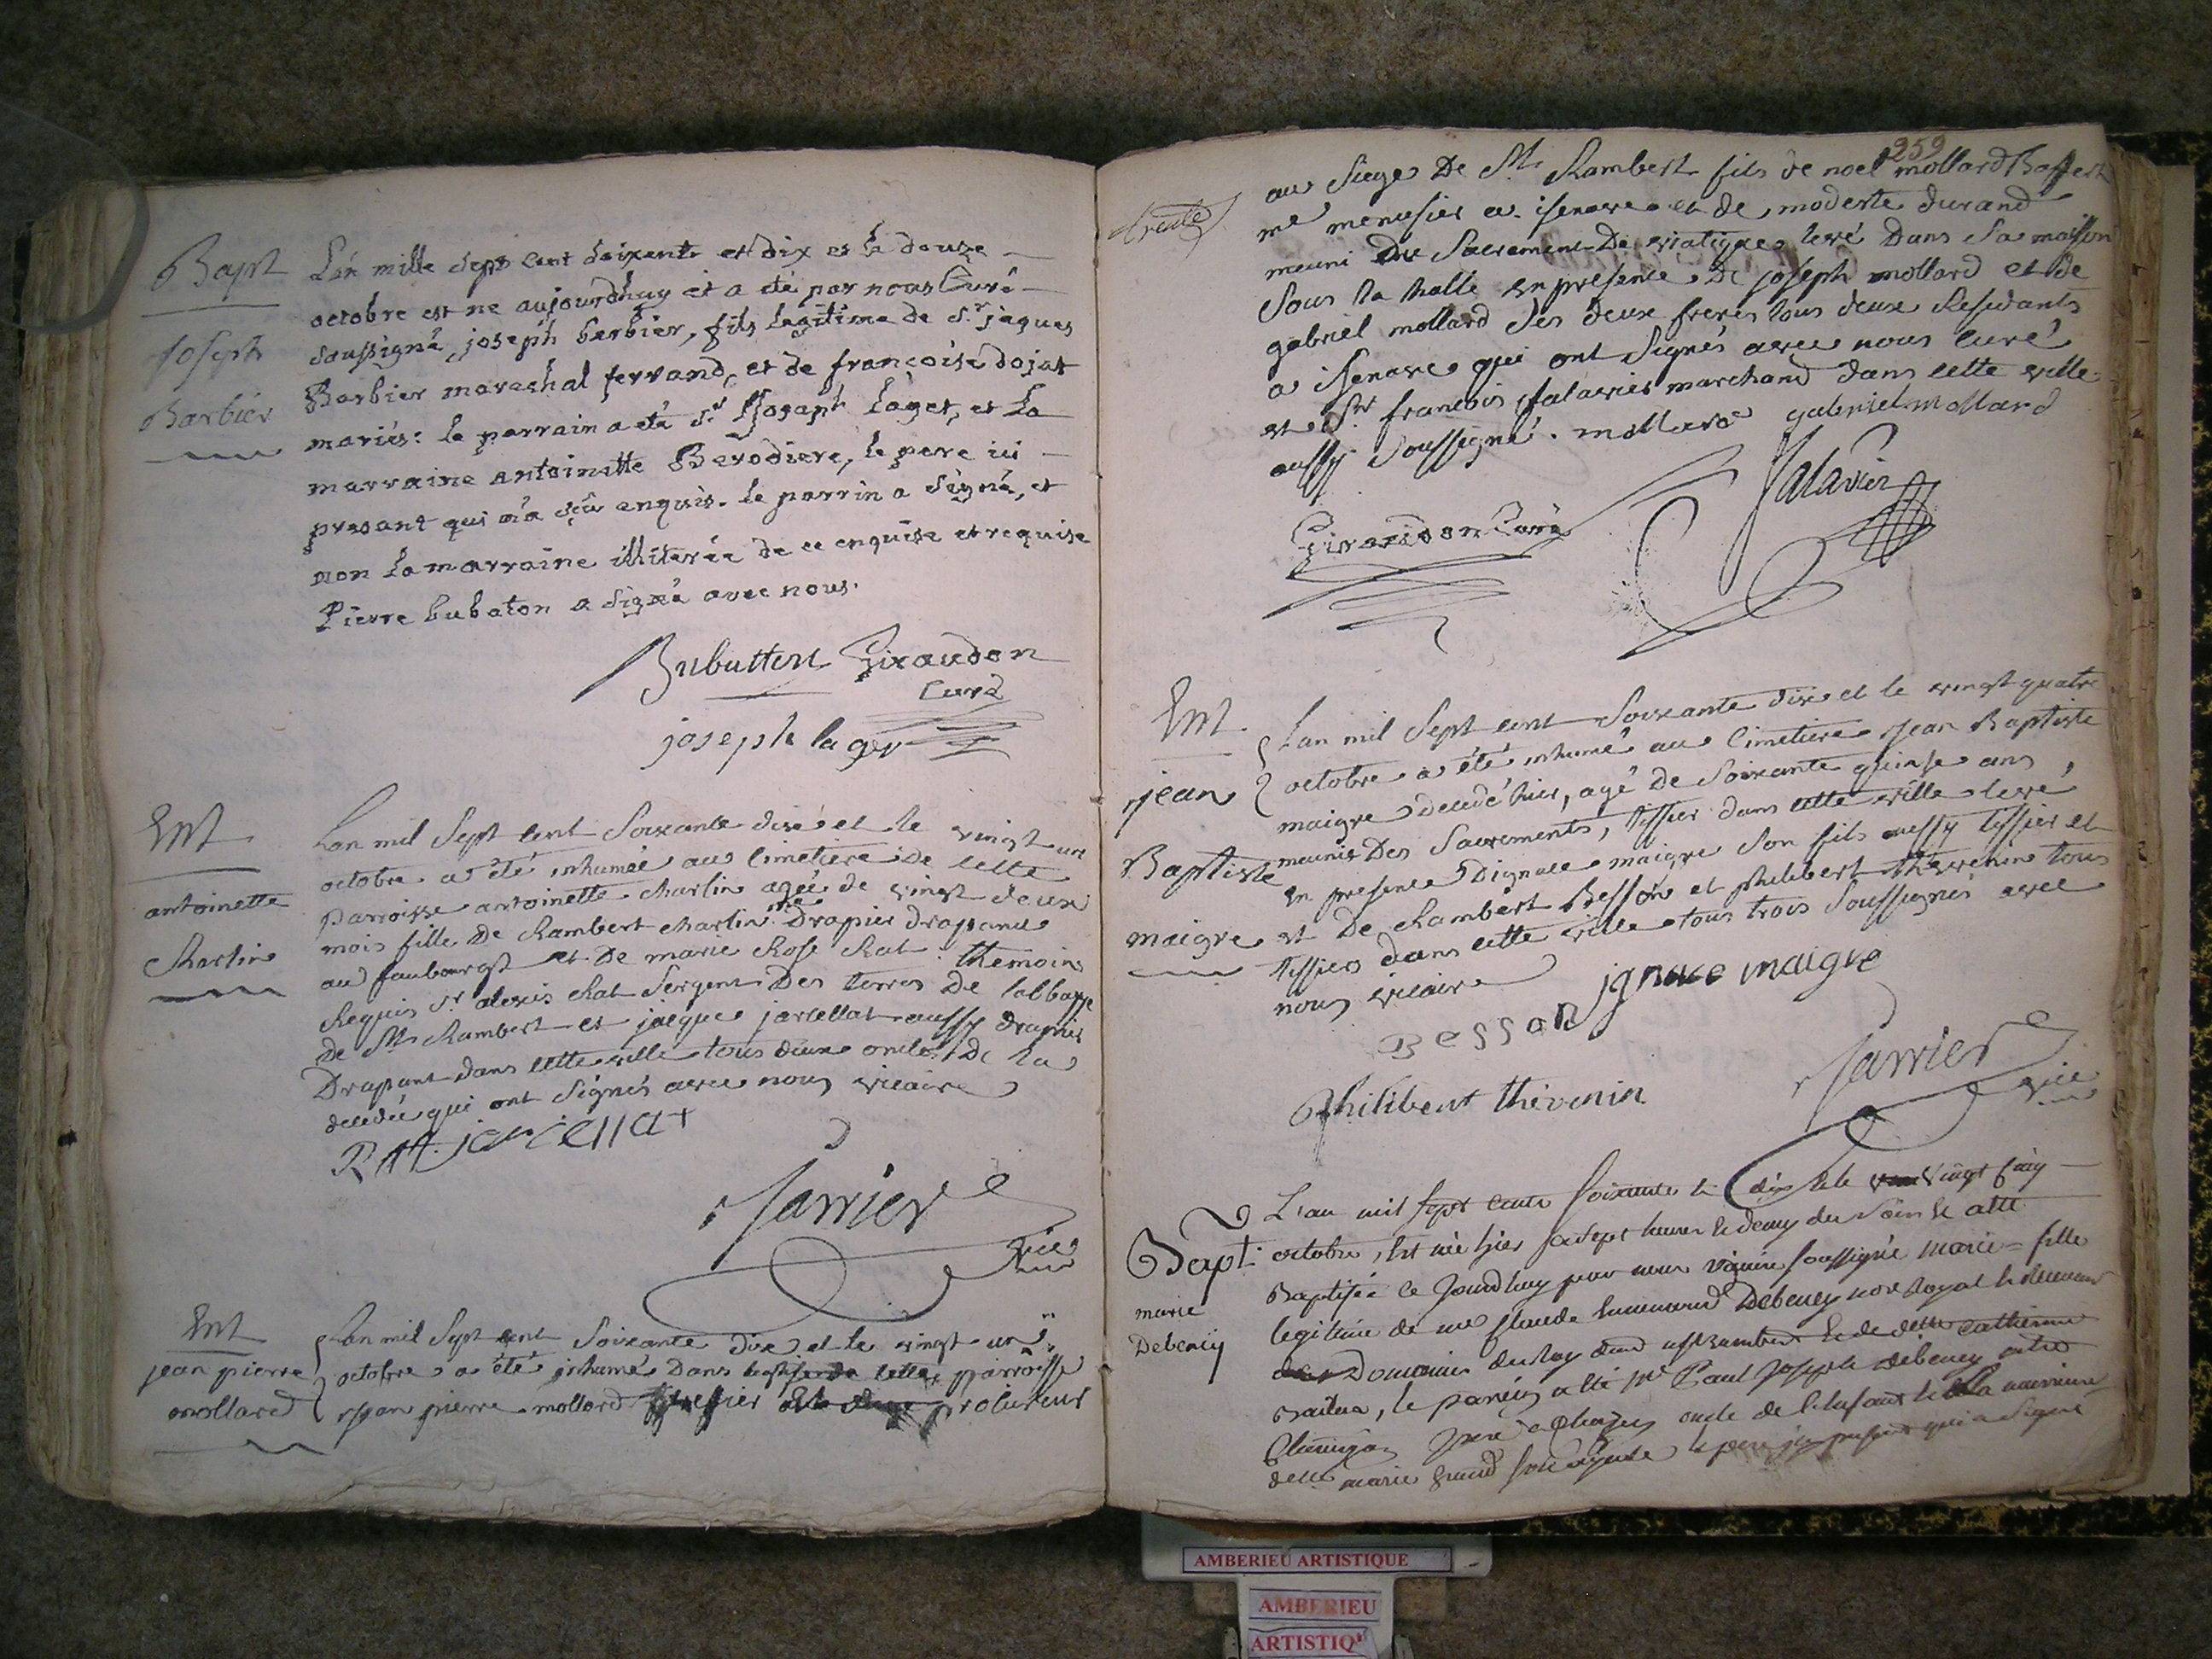 Bapt
Joseph
Barbier
Lan mille sept cent soixente et dix et le douze
octobre est ne aujourdhuy et a été par nous Curé
soussigné, joseph barbier, fils legitime de Sr jaques
Barbier mareshal ferrand, et de francoise dojat
mariés: le parrain a été Sr Joseph Lager, et la
marraine antoinette Berodiere, le pere ici
presant qui n'a sçu enquis. le parrin a signé, et
non la marraine illiterée de ce enquise et requise
Pierre bubaton a signé avec nous.
Bubatton Giraudon
Curé
joseph lager
Ent
antoinette
Charlin
Lan mil Sept cent Soixante dix et le vingt un
octobre a été inhumée au Cimetiere de cette
parroisse antoinette charlin agée de vingt deux
mois fille de Rambert charlin me Drapier drapant
au faubourgt et De marie Rose Rat. themoins
Requis Sr alexis Rat Sergent Des terres De labbaye
de St Rambert et jacque jarcellat aussy drapier
Drapant dans cette ville tous deux oncles De la
decedée qui ont Signés avec nous vicaire
Ratt jarcellat
Jarrier
vice
Ent
jean pierre
mollard
Lan mil Sept cent Soixante dix et le vingt un
octobre a été inhumé Dans cette parroisse
jean pierre mollard procureur
259
au Siege De St Rambert fils de noel mollard
me menusier a isenave et de modeste durand
meuni Du Sacrement De viatique levé Dans Sa maison
Sous la halle en presence De joseph mollard et de
gabriel mollard Ses deux freres tous deux Residants
a isenave qui ont Signés avec nous curé
et Sr francois falavier marchand dans cette ville
aussy Soussigné. mollard gabriel mollard
falavier
Giraudon Curé
Ent
jean
Baptiste
maigre
Lan mil Sept cent Soixante dix et le vingt quatre
octobre a été inhumé au Cimetiere jean Baptiste
maigre decedé hier, agé de Soixante quinse ans,
meunis Des Sacrements, tissier dans cette ville levé
en presence Dignace maigre Son fils aussy tissier et
et De Rambert Besson et philibert thevenin tous
tissiers dans cette ville tous trois Soussignés avec
nous vicaire
ignace maigre
Besson
Philibert thévenin
Jarrier
vice
Bapt.
marie
Debeney
L'an mil sept cents soixante et dix et le vingt cinq
octobre, est née hier a sept heures et demy du soir et a été
Baptisée ce jourdhuy par nous vicaire soussigné marie fille
legitime de me Claude Debeney nore Royal et
Domaines du Roy St Rambert et de catherine
, le parrein a été me Paul Joseph debeney
oncle de l'enfant et la marreine
delle marie present qui a signé